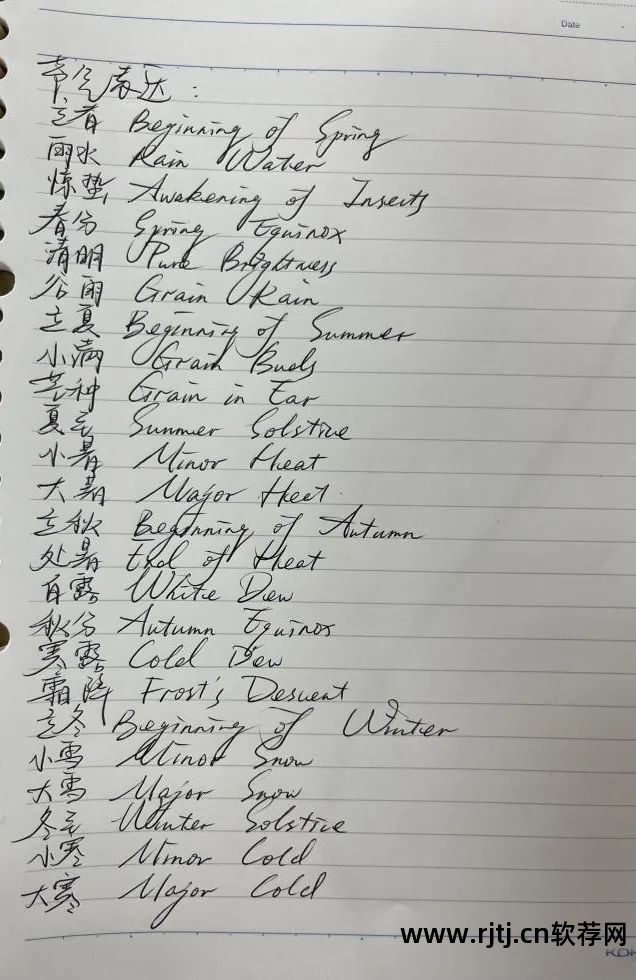 Date
节气表达:
立春 Beginning of Spring
雨水 Rain Water
惊蛰 Awakening of Insects
春分 Spring Equinox
清明 Pure Brightness
谷雨 Grain Rain
立夏 Beginning of Summer
小满 Grain Buds
芒种 Grain in Ear
夏至 Summer Solstice
小暑 Minor Heat
大暑 Major Heat
立秋 Beginning of Autumn
处暑 End of Heat
白露 White Dew
秋分 Autumn Equinox
寒露 Cold Dew
霜降 Frost's Descent
立冬 Beginning of Winter
小雪 Minor Snow
大雪 Major Snow
冬至 Winter Solstice
小寒 Minor Cold
大寒 Major Cold
www.rjtj.cn软荐网